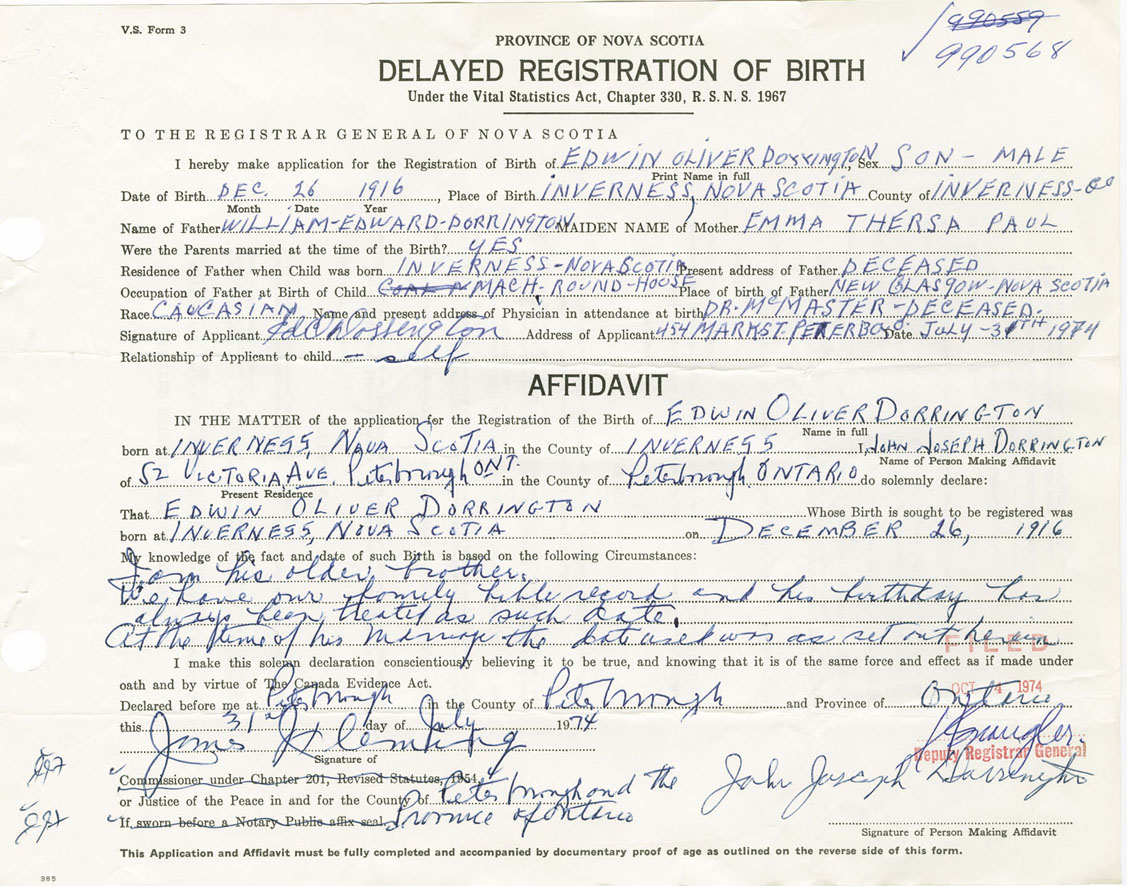 V.S. Form 3
990559
990568
PROVINCE OF NOVA SCOTIA
DELAYED REGISTRATION OF BIRTH
Under the Vital Statistics Act, Chapter 330, R. S. N. S. 1967
TO THE REGISTRAR GENERAL OF NOVA SCOTIA
I hereby make application for the Registration of Birth of EDWIN OLIVER DORRINGTON Sex SON - MALE
Print Name in full
Date of Birth DEC. 26 1916, Place of Birth INVERNESS, NOVA SCOTIA County of INVERNESS-CO
Month Date Year
Name of Father WILLIAM-EDWARD-DORRINGTON MAIDEN NAME of Mother EMMA THERSA PAUL
Were the Parents married at the time of the Birth? YES
Residence of Father when Child was born INVERNESS-NOVA SCOTIA Present address of Father DECEASED
Occupation of Father at Birth of Child COAL MACH-ROUND-HOUSE Place of birth of Father NEW GLASGOW-NOVA SCOTIA
Race CAUCASIAN, Name and present address of Physician in attendance at birth DR. McMASTER-DECEASED.
Signature of Applicant Ed O Dorrington Address of Applicant 454 MARK ST. PETERBORO. Date JULY-31TH 1974
Relationship of Applicant to child - self
AFFIDAVIT
IN THE MATTER of the application for the Registration of the Birth of EDWIN OLIVER DORRINGTON
Name in full
born at INVERNESS, NAVA SCOTIA in the County of INVERNESS I, JOHN JOSEPH DORRINGTON
Name of Person Making Affidavit
of 52 VICTORIA AVE. Peterborough ONT. in the County of Peterborough ONTARIO do solemnly declare:
Present Residence
That EDWIN OLIVER DORRINGTON Whose Birth is sought to be registered was
born at INVERNESS, NOVA SCOTIA on DECEMBER 26, 1916
My knowledge of the fact and date of such Birth is based on the following Circumstances:
I am his older brother.
We have our family bible record and his birthday has
always been treated as such date.
At the time of his marriage the date used was as set out herein
FILED
I make this solemn declaration conscientiously believing it to be true, and knowing that it is of the same force and effect as if made under
oath and by virtue of The Canada Evidence Act.
OCT 4 1974
Declared before me at Peterborough in the County of Peterborough and Province of Ontario
this 31st day of July 1974
James Fleming
Signature of
Deputy Registrar General
Commissioner under Chapter 201, Revised Statutes, 1954,
John Joseph Dorrington
or Justice of the Peace in and for the County of Peterborough and the
If sworn before a Notary Public affix seal. Province of Ontario
Signature of Person Making Affidavit
This Application and Affidavit must be fully completed and accompanied by documentary proof of age as outlined on the reverse side of this form.
385